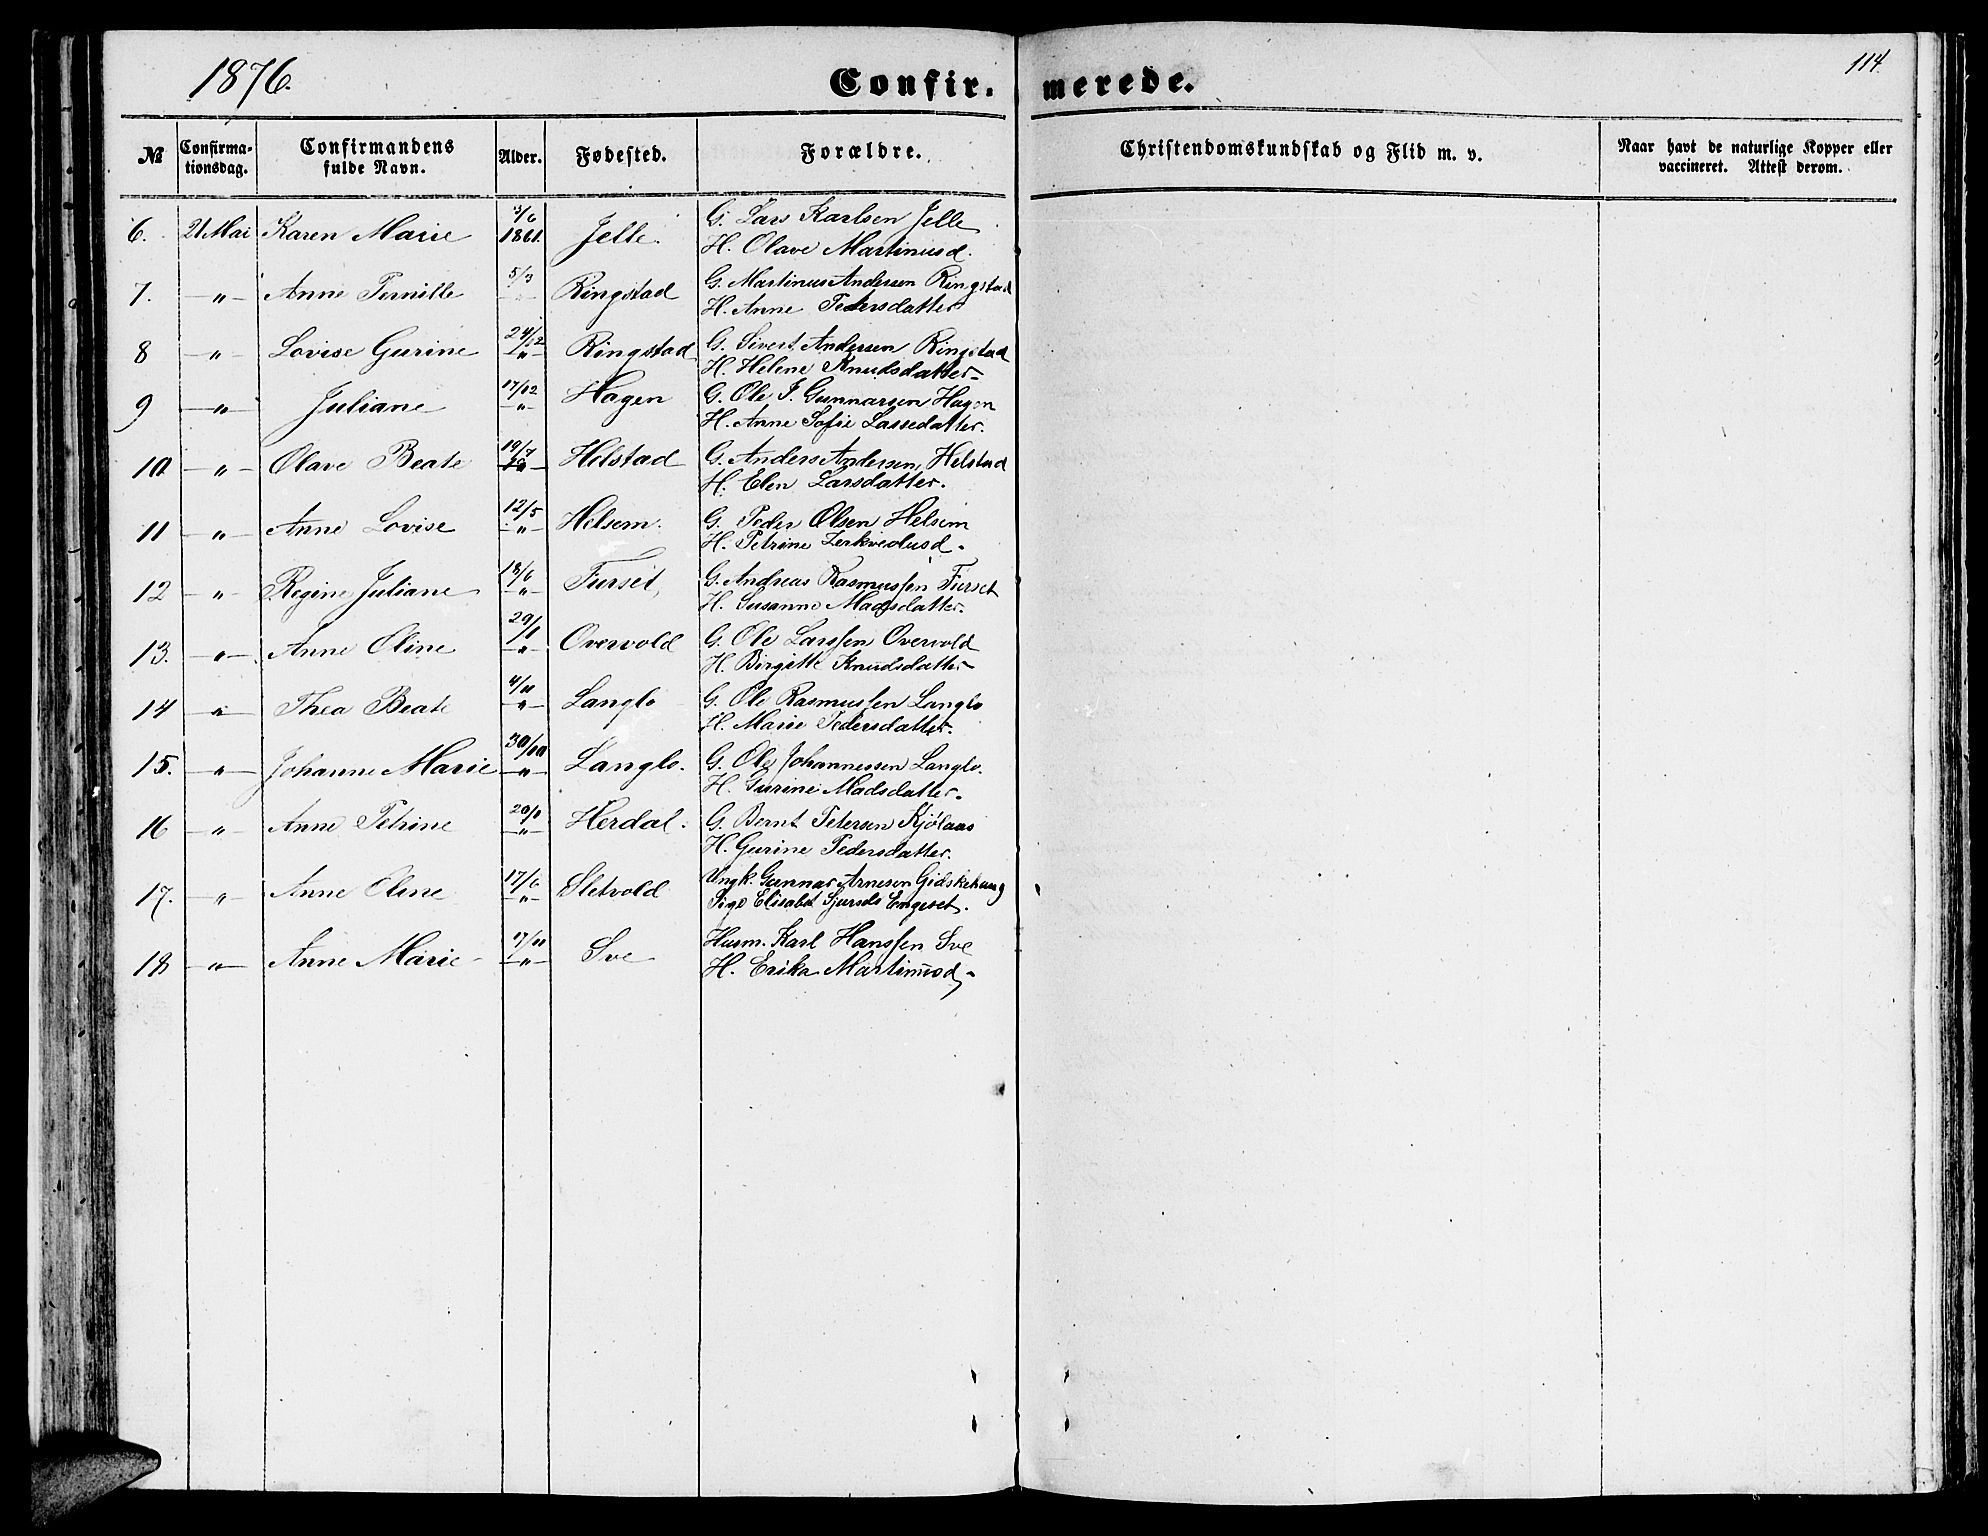 1876.
Confir. merede.
114.
№ Confirmationsdag. Confirmandens fulde Navn. Alder. Fødested. Forældre. Christendomskundskab og Flid m. v. Naar havt de naturlige Kopper eller vaccineret. Attest derom.
6. 21 Mai Karen Marie 3/6 1861. Jelle. G. Lars Karlsen Jelle
H. Olave Martinusd.
7. —"— Anne Pernille 5/3 Ringstad G. Martinus Andersen Ringstad
H. Anne Pedersdatter
8 —"— Lovise Gurine 24/12 —"— Ringstad G. Sivert Andersen Ringstad
H. Helene Knudsdatter
9 —"— Juliane 17/12 —"— Hagen G. Ole J. Gunnarsen Hagen
H. Anne Sofie Lassedatter.
10 —"— Olave Beate 19/7 Helstad G. Anders Andersen Helstad
H. Elen Larsdatter.
11 —"— Anne Lovise 12/5 —"— Helsem. G. Peder Olsen Helsem
H. Petrine Zerkvedusd.
12 —"— Regine Juliane 18/6 —"— Furset, G. Andreas Rasmussen Furset
H. Susanne Madsdatter.
13. —"— Anne Oline 29/8 —"— Overvold G. Ole Larssen Overvold
H. Birgitte Knudsdatter
14 —"— Thea Beate 4/11 —"— Langlo G. Ole Rasmussen Langlo
H. Marie Pedersdatter.
15. —"— Johanne Marie 30/10 —"— Langlo. G. Ole Johannessen Langlo.
H. Gurine Madsdatter.
16 —"— Anne Petrine 20/8 —"— Herdal. G. Bernt Petersen Kjölaas
H. Gurine Pedersdatter.
17. —"— Anne Oline 17/6 —"— Sletvold Ungk. Gunnar Arnesen Gidskehaug
Pige Elisabet Sjursd. Engeset.
18 —"— Anne Marie 17/11 —"— Sve Husm. Karl Hanssen Sve
H. Erika Martinusd.